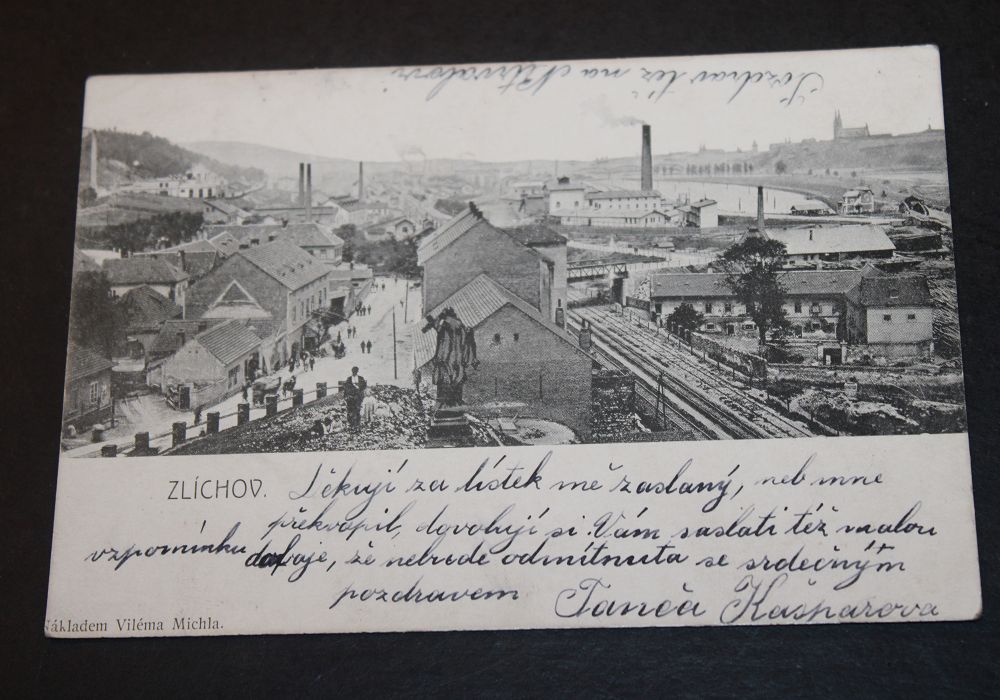 Pozdrav též na
ZLÍCHOV.
Lěkují za lístek mě zaslaný, neb mne
překvapil, dovolují si Vám zaslati též malou
vzpomínku doufaje, že nebude odmítnuta se srdečným
pozdravem Kašparova
Nákladem Viléma Michla.